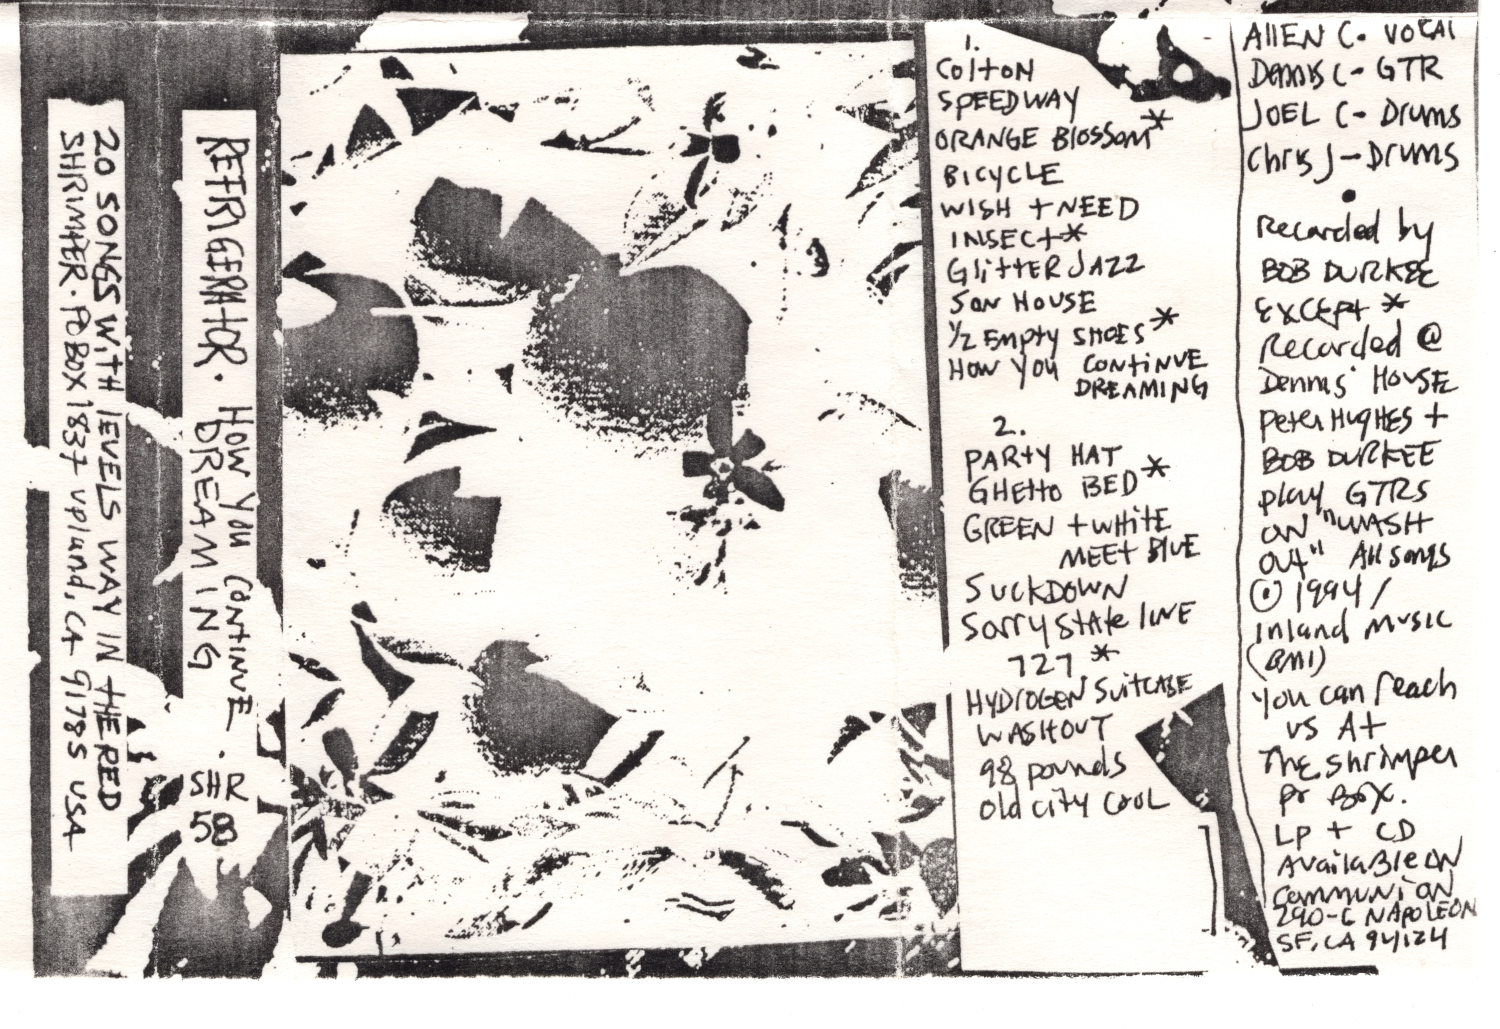 20 SONGS WITH LEVELS WAY IN THE RED
SHRIMPER. PO BOX 1837 upland, CA 91785 USA
REFRIGERATOR. HOW YOU CONTINUE
DREAMING
SHR
58
1.
COLTON
SPEEDWAY
ORANGE BLOSSOM*
BICYCLE
WISH + NEED
INSECT*
GLITTER JAZZ
SON HOUSE
1/2 EMPTY SHOES*
HOW YOU CONTINUE
DREAMING
2.
PARTY HAT
GHETTO BED*
GREEN + WHITE
MEET BLUE
SUCKDOWN
Sorry State LINE
727*
HYDROGEN SUITCASE
WASHOUT
98 pounds
Old city COOL
AllEN C. VOCAl
Dennis C - GTR
JOEL C - Drums
Chris J - Drums
•
Recorded by
BOB DURKEE
EXCEPT *
Recorded @
Dennis' HOUSE
Peter Hughes +
BOB DURKEE
play GTRS
ON "WASH
OUT" All songs
© 1994 /
Inland MUSIC
(BMI)
You can reach
us At
The shrimper
po Box.
LP + CD
AvailaBle ON
Communion
290-C NAPOLEON
SF, CA 94124